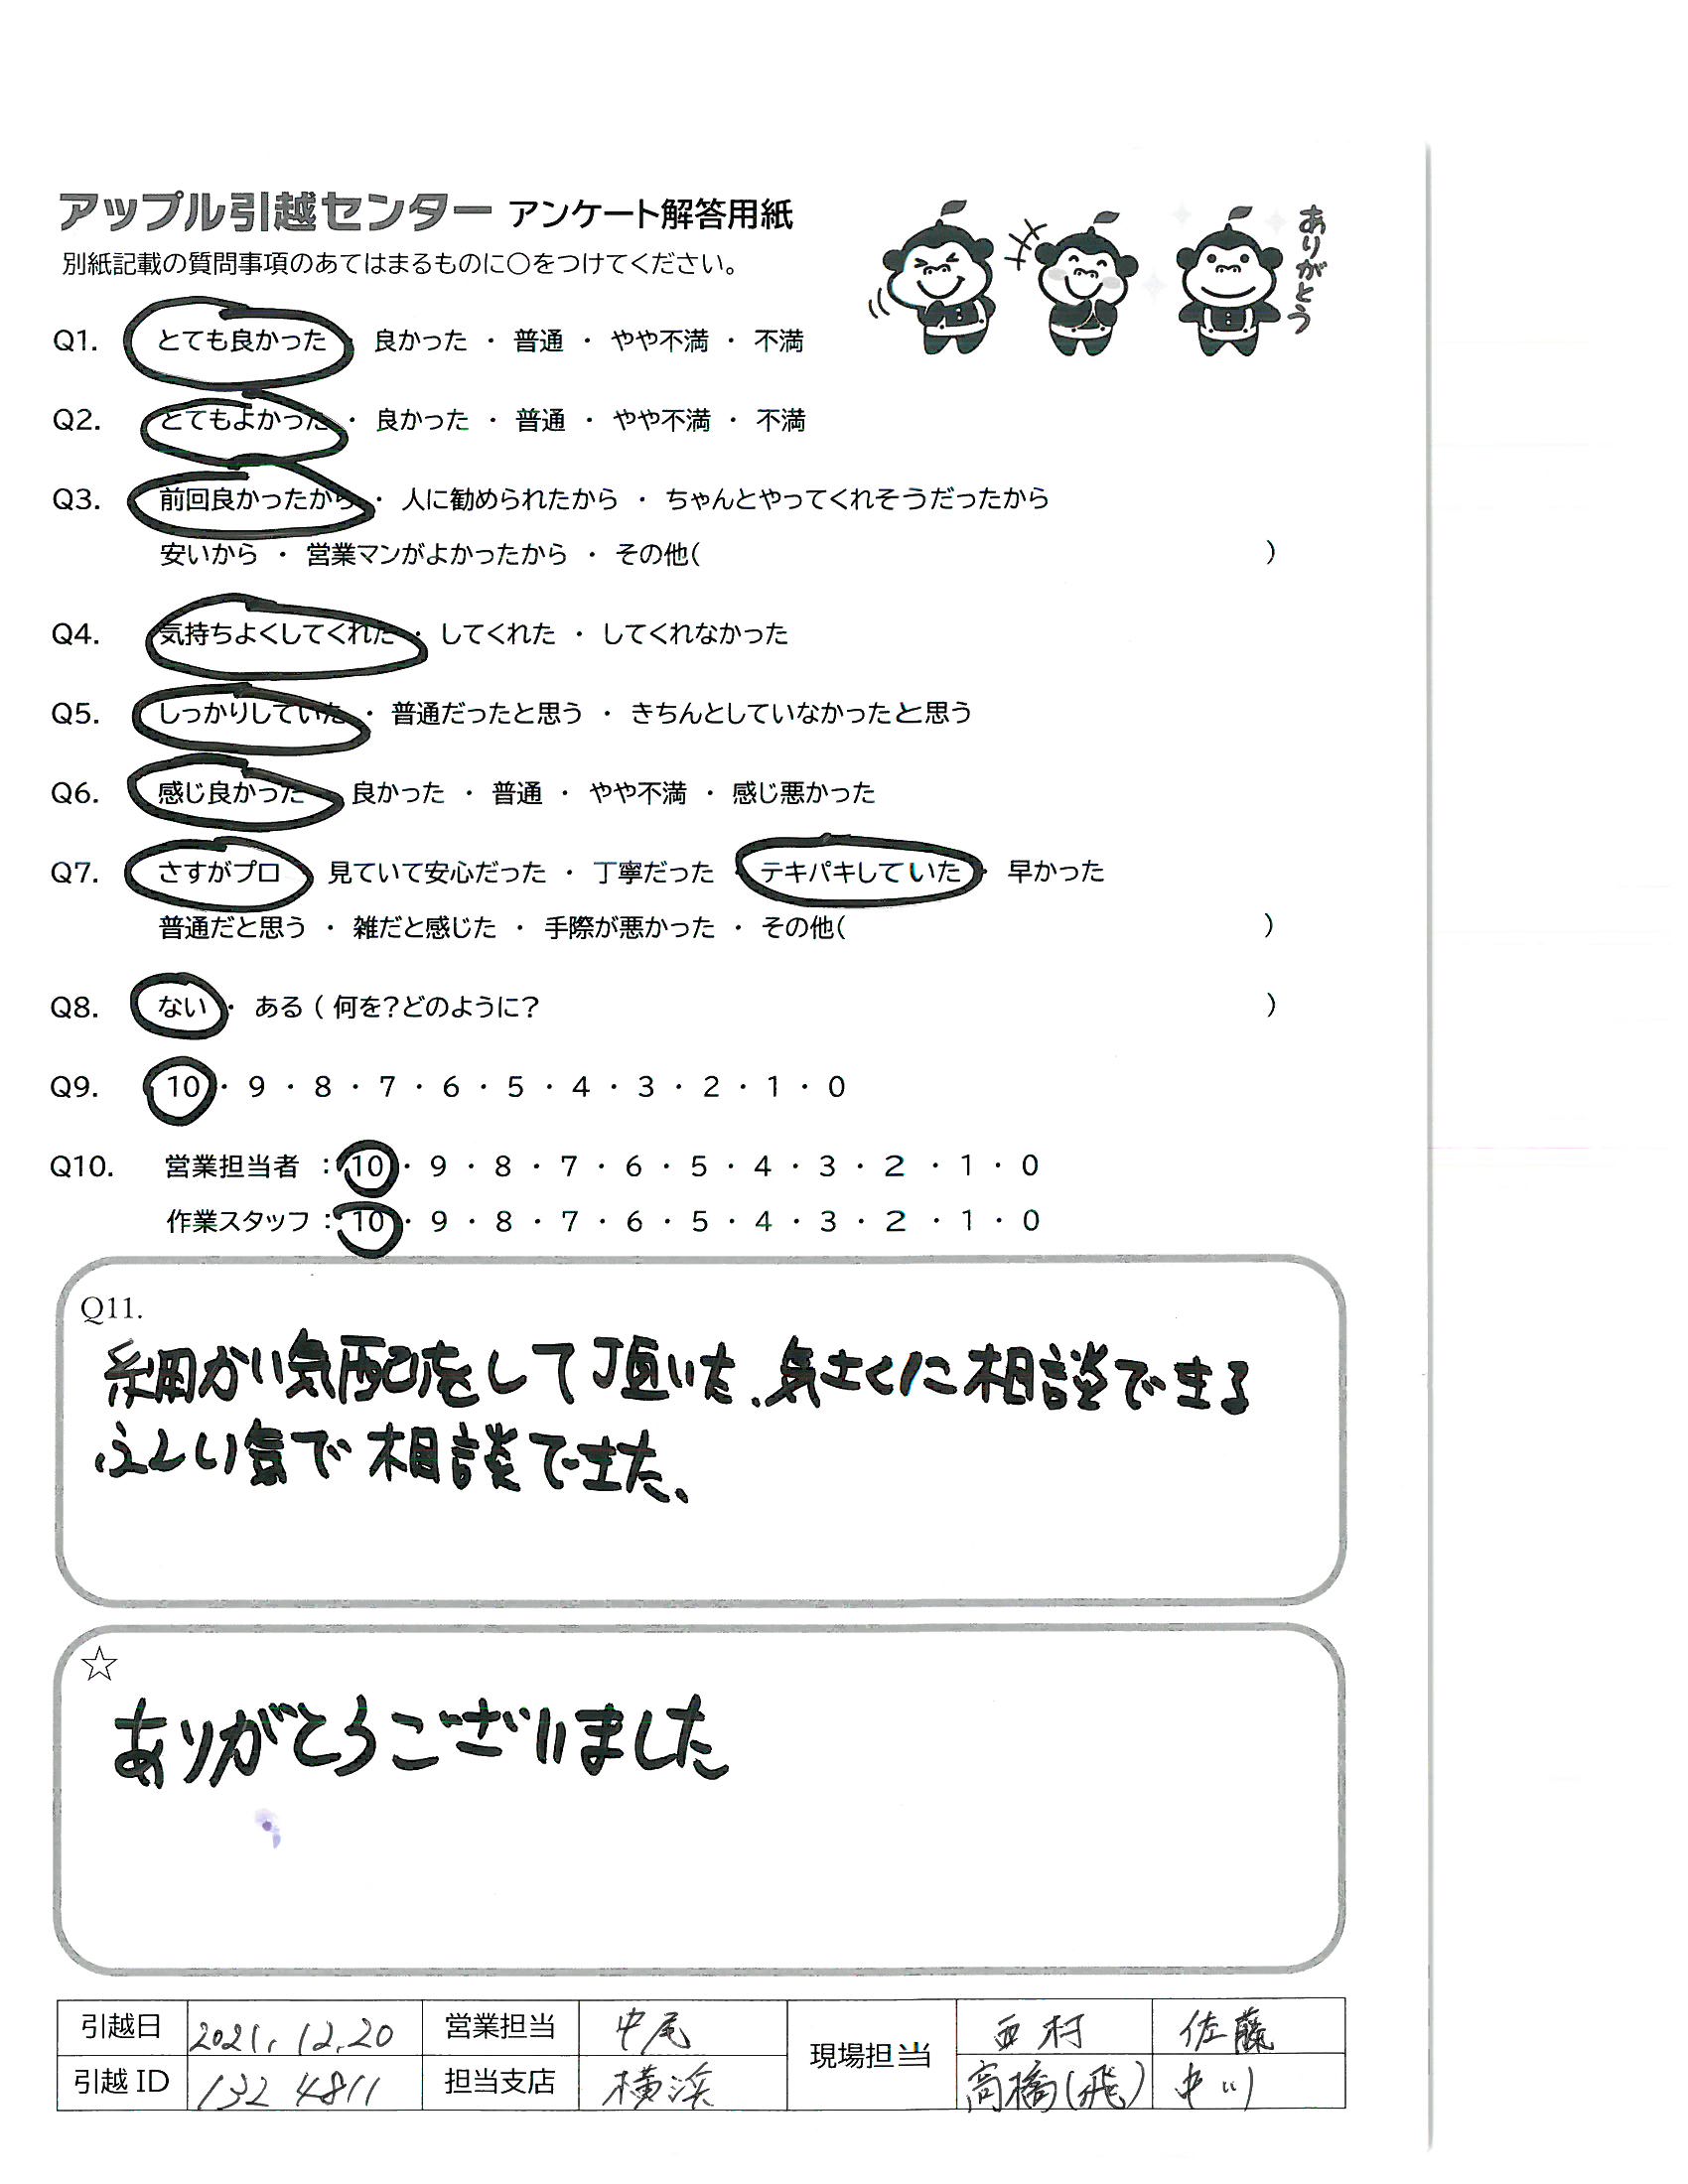 アップル引越センター アンケート解答用紙
別紙記載の質問事項のあてはまるものに○をつけてください。
ありがとう
Q1. とても良かった ・ 良かった ・ 普通 ・ やや不満 ・ 不満
Q2. とてもよかった ・ 良かった ・ 普通 ・ やや不満 ・ 不満
Q3. 前回良かったから ・ 人に勧められたから ・ ちゃんとやってくれそうだったから
安いから ・ 営業マンがよかったから ・ その他( )
Q4. 気持ちよくしてくれた ・ してくれた ・ してくれなかった
Q5. しっかりしていた ・ 普通だったと思う ・ きちんとしていなかったと思う
Q6. 感じ良かった 良かった ・ 普通 ・ やや不満 ・ 感じ悪かった
Q7. さすがプロ 見ていて安心だった ・ 丁寧だった テキパキしていた ・ 早かった
普通だと思う ・ 雑だと感じた ・ 手際が悪かった ・ その他( )
Q8. ない ・ ある ( 何を?どのように? )
Q9. 10 ・ 9 ・ 8 ・ 7 ・ 6 ・ 5 ・ 4 ・ 3 ・ 2 ・ 1 ・ 0
Q10. 営業担当者 : 10 ・ 9 ・ 8 ・ 7 ・ 6 ・ 5 ・ 4 ・ 3 ・ 2 ・ 1 ・ 0
作業スタッフ : 10 ・ 9 ・ 8 ・ 7 ・ 6 ・ 5 ・ 4 ・ 3 ・ 2 ・ 1 ・ 0
Q11.
細かい気配をして頂いた、気さくに相談できる
ふんい気で相談できた、
☆
ありがとうございました
引越日 2021.12.20 営業担当 中尾 現場担当 西村 佐藤
引越ID 1324811 担当支店 横浜 高橋(飛) 中川